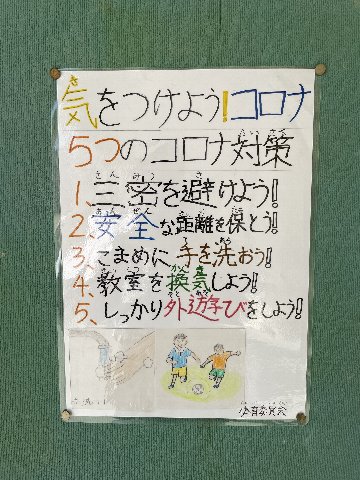 気をつけよう!コロナ
5つのコロナ対策
1、三密を避けよう!
2、安全な距離を保とう!
3、こまめに手を洗おう!
4、教室を換気しよう!
5、しっかり外遊びをしよう!
体育委員会